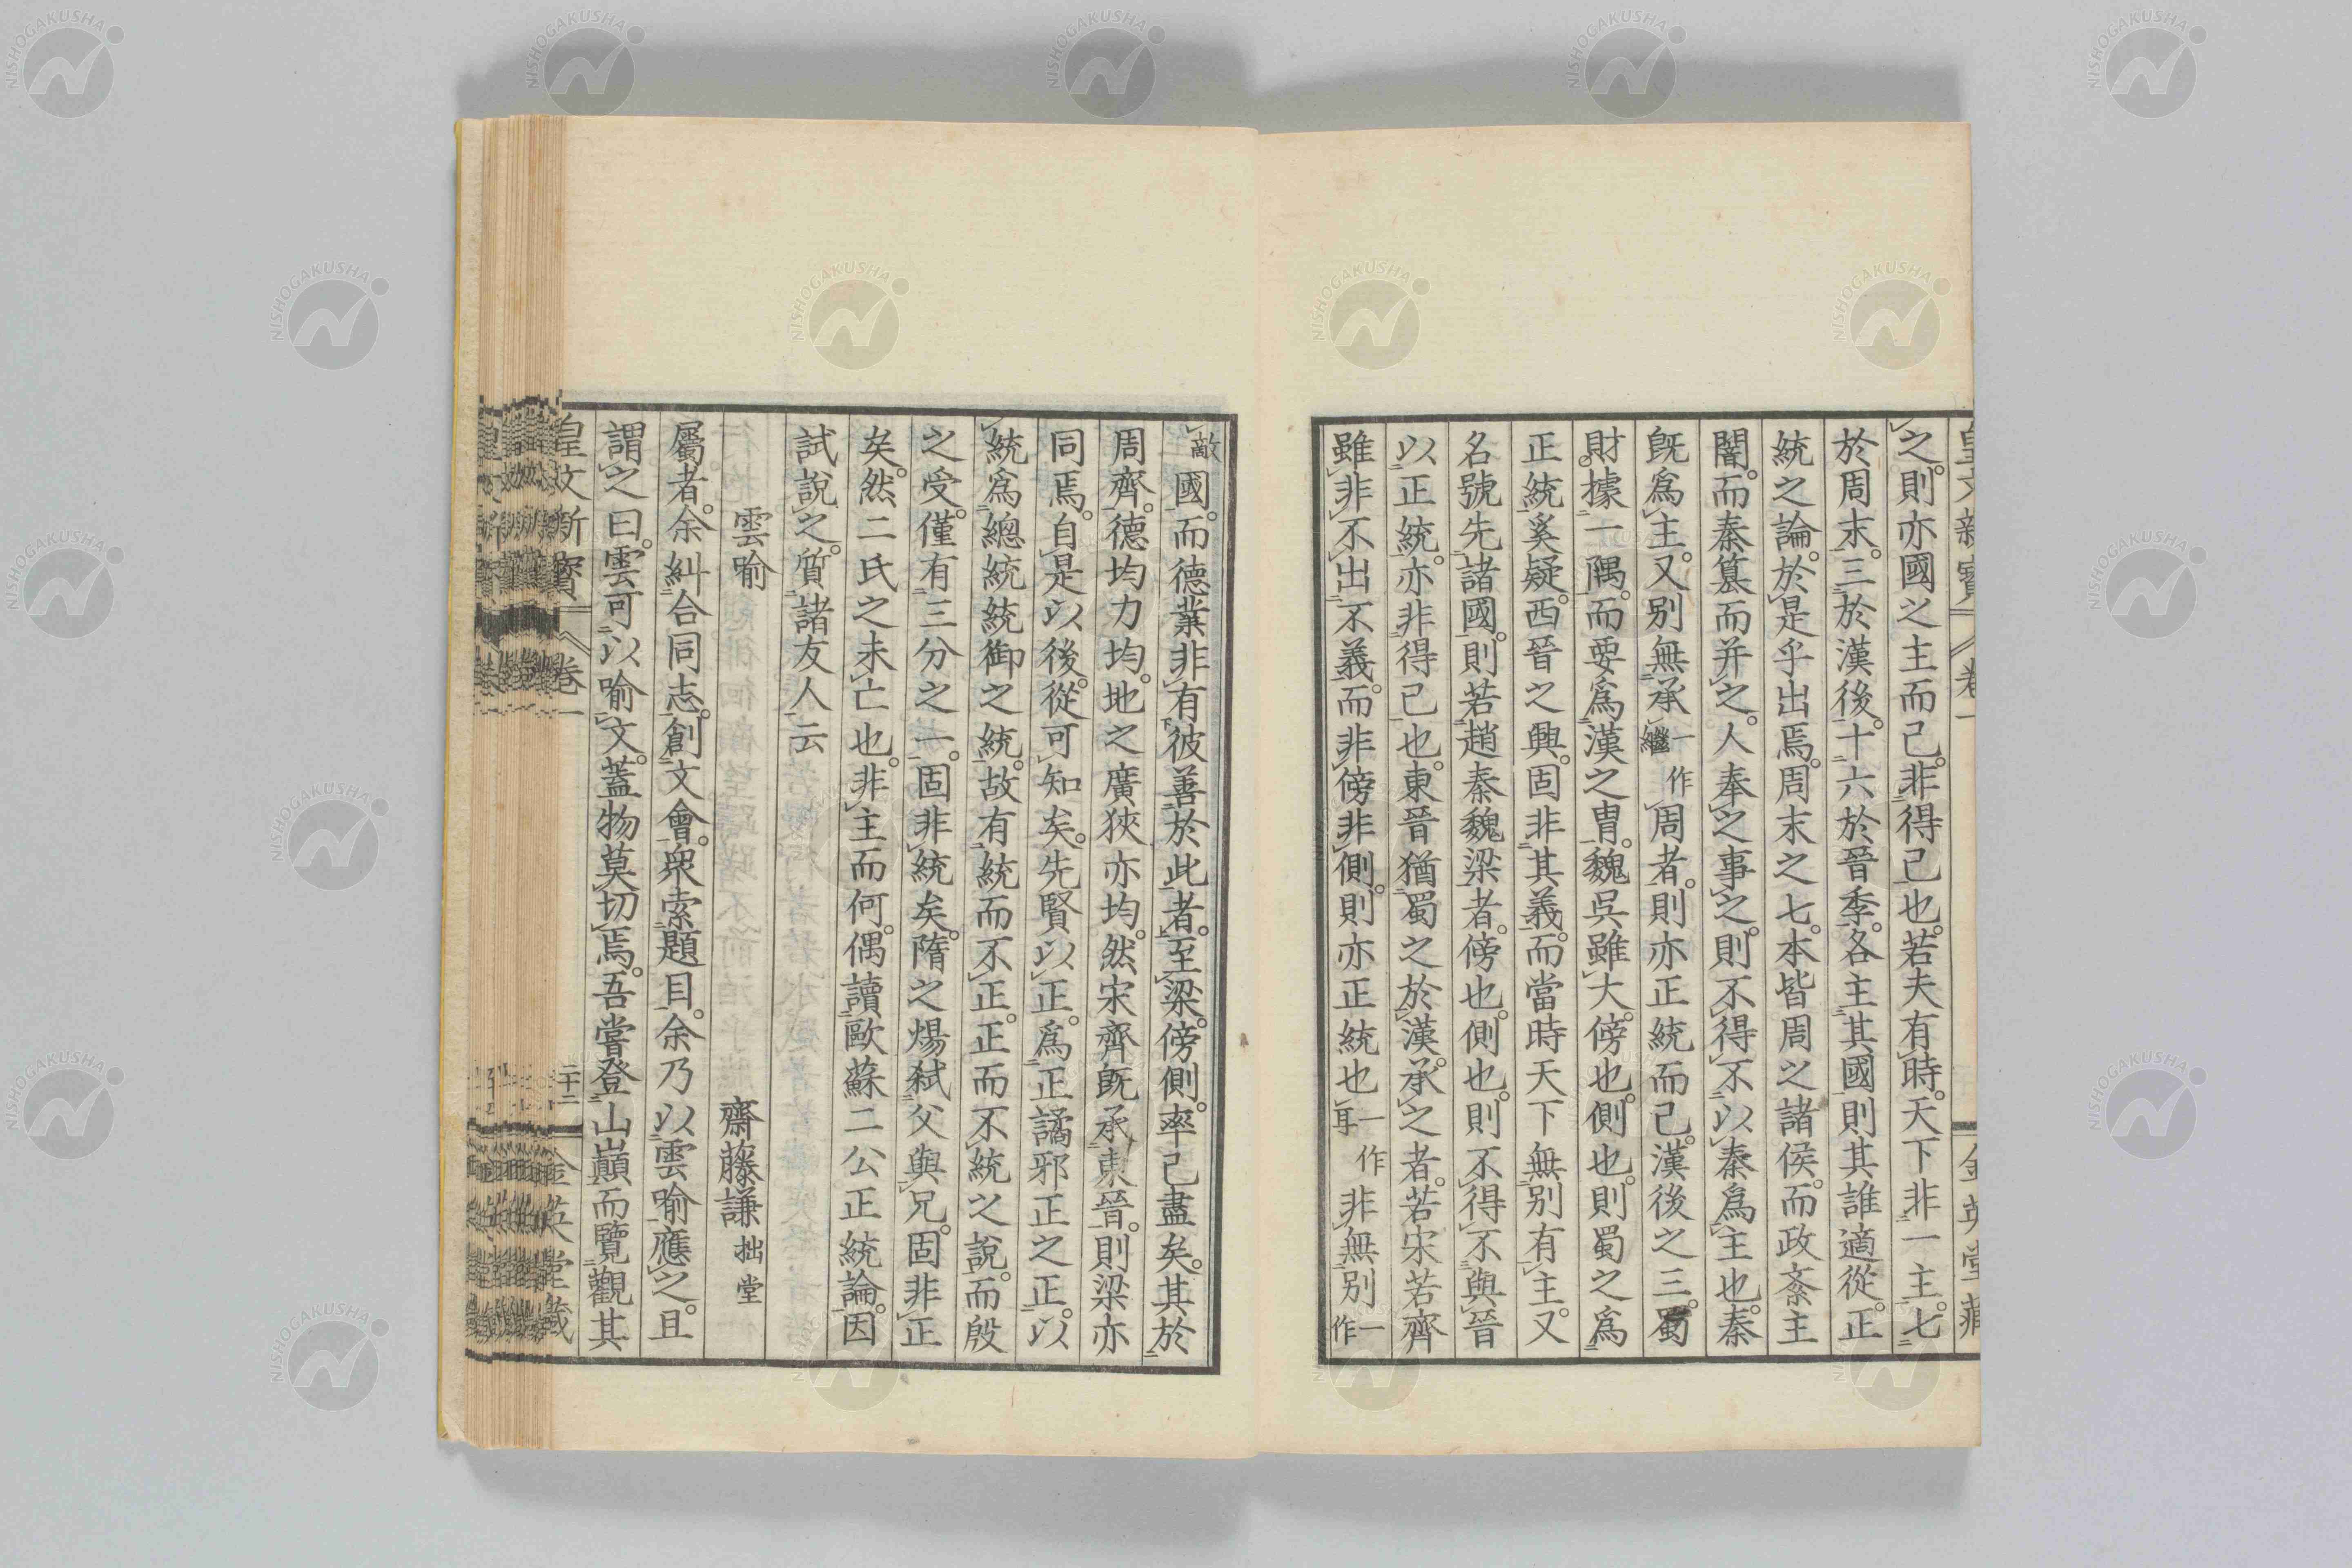 皇文新寶 卷一 金英堂藏
之。則亦國之主而已。非得已也。若夫有時。天下非一主。七
於周末。三於漢後。十六於晉季。各主其國。則其誰適從。正
統之論。於是乎出焉。周末之七。本皆周之諸侯。而政紊主
闇。而秦簒而并之。人奉之事之。則不得不以秦爲主也。秦
既爲主。又別無承一作繼周者。則亦正統而已。漢後之三。蜀
財據一隅。而要爲漢之冑。魏呉雖大。傍也。側也。則蜀之爲
正統奚疑。西晉之興。固非其義。而當時天下無別有主。又
名號先諸國。則若趙秦魏梁者。傍也。側也。則不得不與晉
以正統。亦非得已也。東晉猶蜀之於漢。承之者。若宋若齊
雖非不出不義。而非傍非側。則亦正統也一作耳非無別一作
敵國。而德業非有彼善於此者。至梁。傍側。率已盡矣。其於
周齊。德均力均。地之廣狹亦均。然宋齊既承東晉。則梁亦
同焉。自是以後。從可知矣。先賢以正。爲正譎邪正之正。以
統爲總統統御之統。故有統而不正。正而不統之說。而殷
之受。僅有三分之一。固非統矣。隋之煬弑父與兄。固非正
矣。然二氏之未亡也。非主而何。偶讀歐蘇二公正統論。因
試說之。質諸友人云
雲喻 齋藤謙拙堂
屬者。余糾合同志。創文會。衆索題目。余乃以雲喻應之。且
謂之曰。雲可以喻文。蓋物莫切焉。吾嘗登山巓而覽觀其
皇文新寶 卷一 二十二 金英堂藏